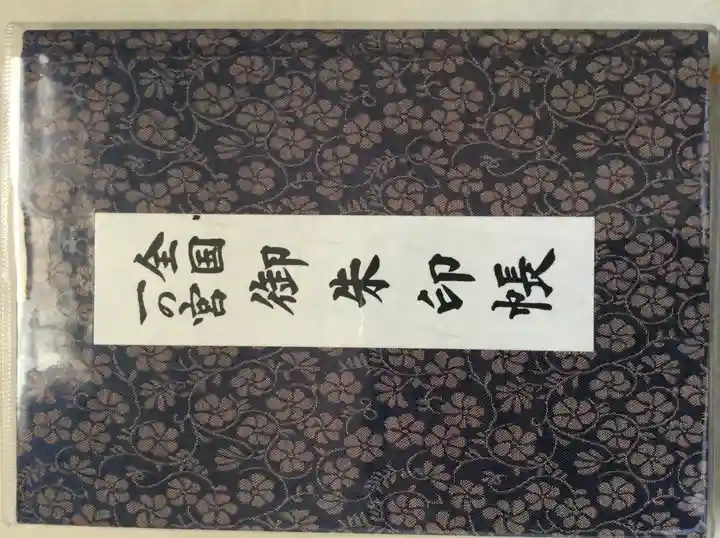 全国
一の宮
御朱印帳